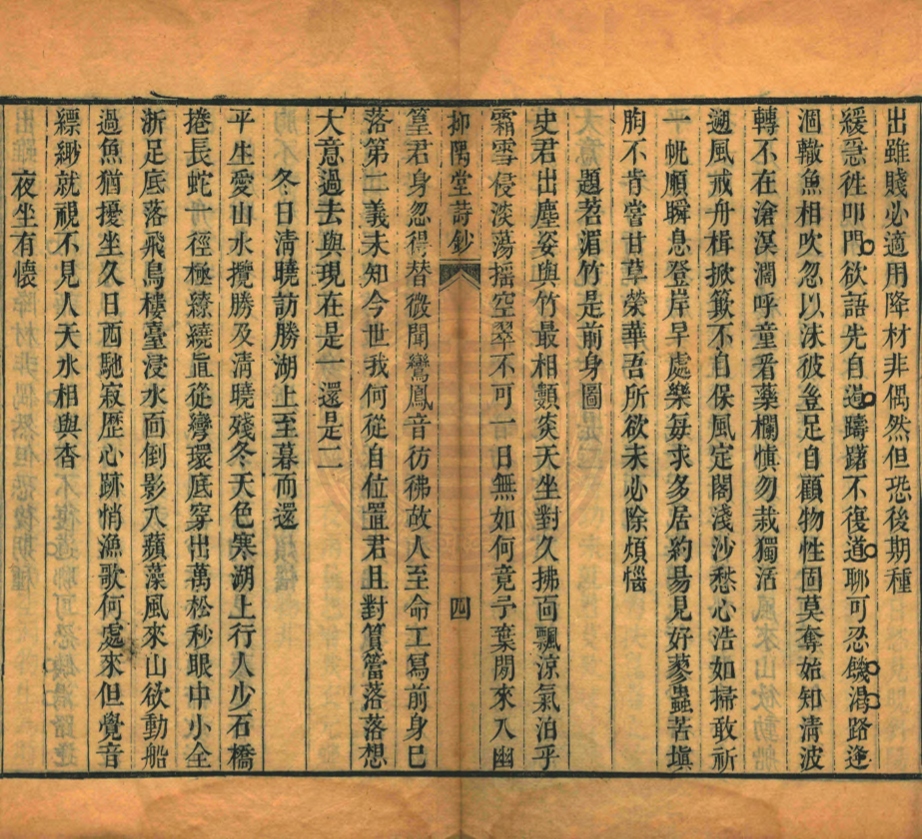 出雖賤必適用降材非偶然但恐後期種
緩急徃叩門欲語先自過躊躇不復道聊可忍饑渴路逢
涸轍魚相吹忽以沫彼豈足自顧物性固莫奪始知清波
轉不在滄溟濶呼童看藥欄慎勿栽獨活
遡風戒舟楫掀簸不自保風定閣淺沙愁心浩如掃敢祈
一帆順瞬息登岸早處樂毎求多居約易見好蓼蟲苦塡
胸不肯嘗甘草榮華吾所欲未必除煩惱
題君湄竹是前身圖
史君出塵姿與竹最相顥炎天坐對久拂面飄涼氣泊乎
霜雪侵淡蕩揺空翠不可一日無如何竟予葉閒來入幽
抑隅堂詩鈔
四
篁君身忽得替微聞鸞鳳音彷彿故人至命工寫前身巳
落第二義未知今世我何從自位置君且對篔簹落落想
大意過去與現在是一還是二
冬日清曉訪勝湖上至暮而還
平生愛山水攬勝及清曉殘冬天色寒湖上行人少石橋
捲長蛇一徑極繚繞直從彎環底穿出萬松秒眼中小全
浙足底落飛鳥樓臺浸水而倒影入蘋藻風來山欲動船
過魚猶擾坐久日西馳寂歴心跡悄漁歌何處來但覺音
縹緲就視不見人天水相與杳
夜坐有懷